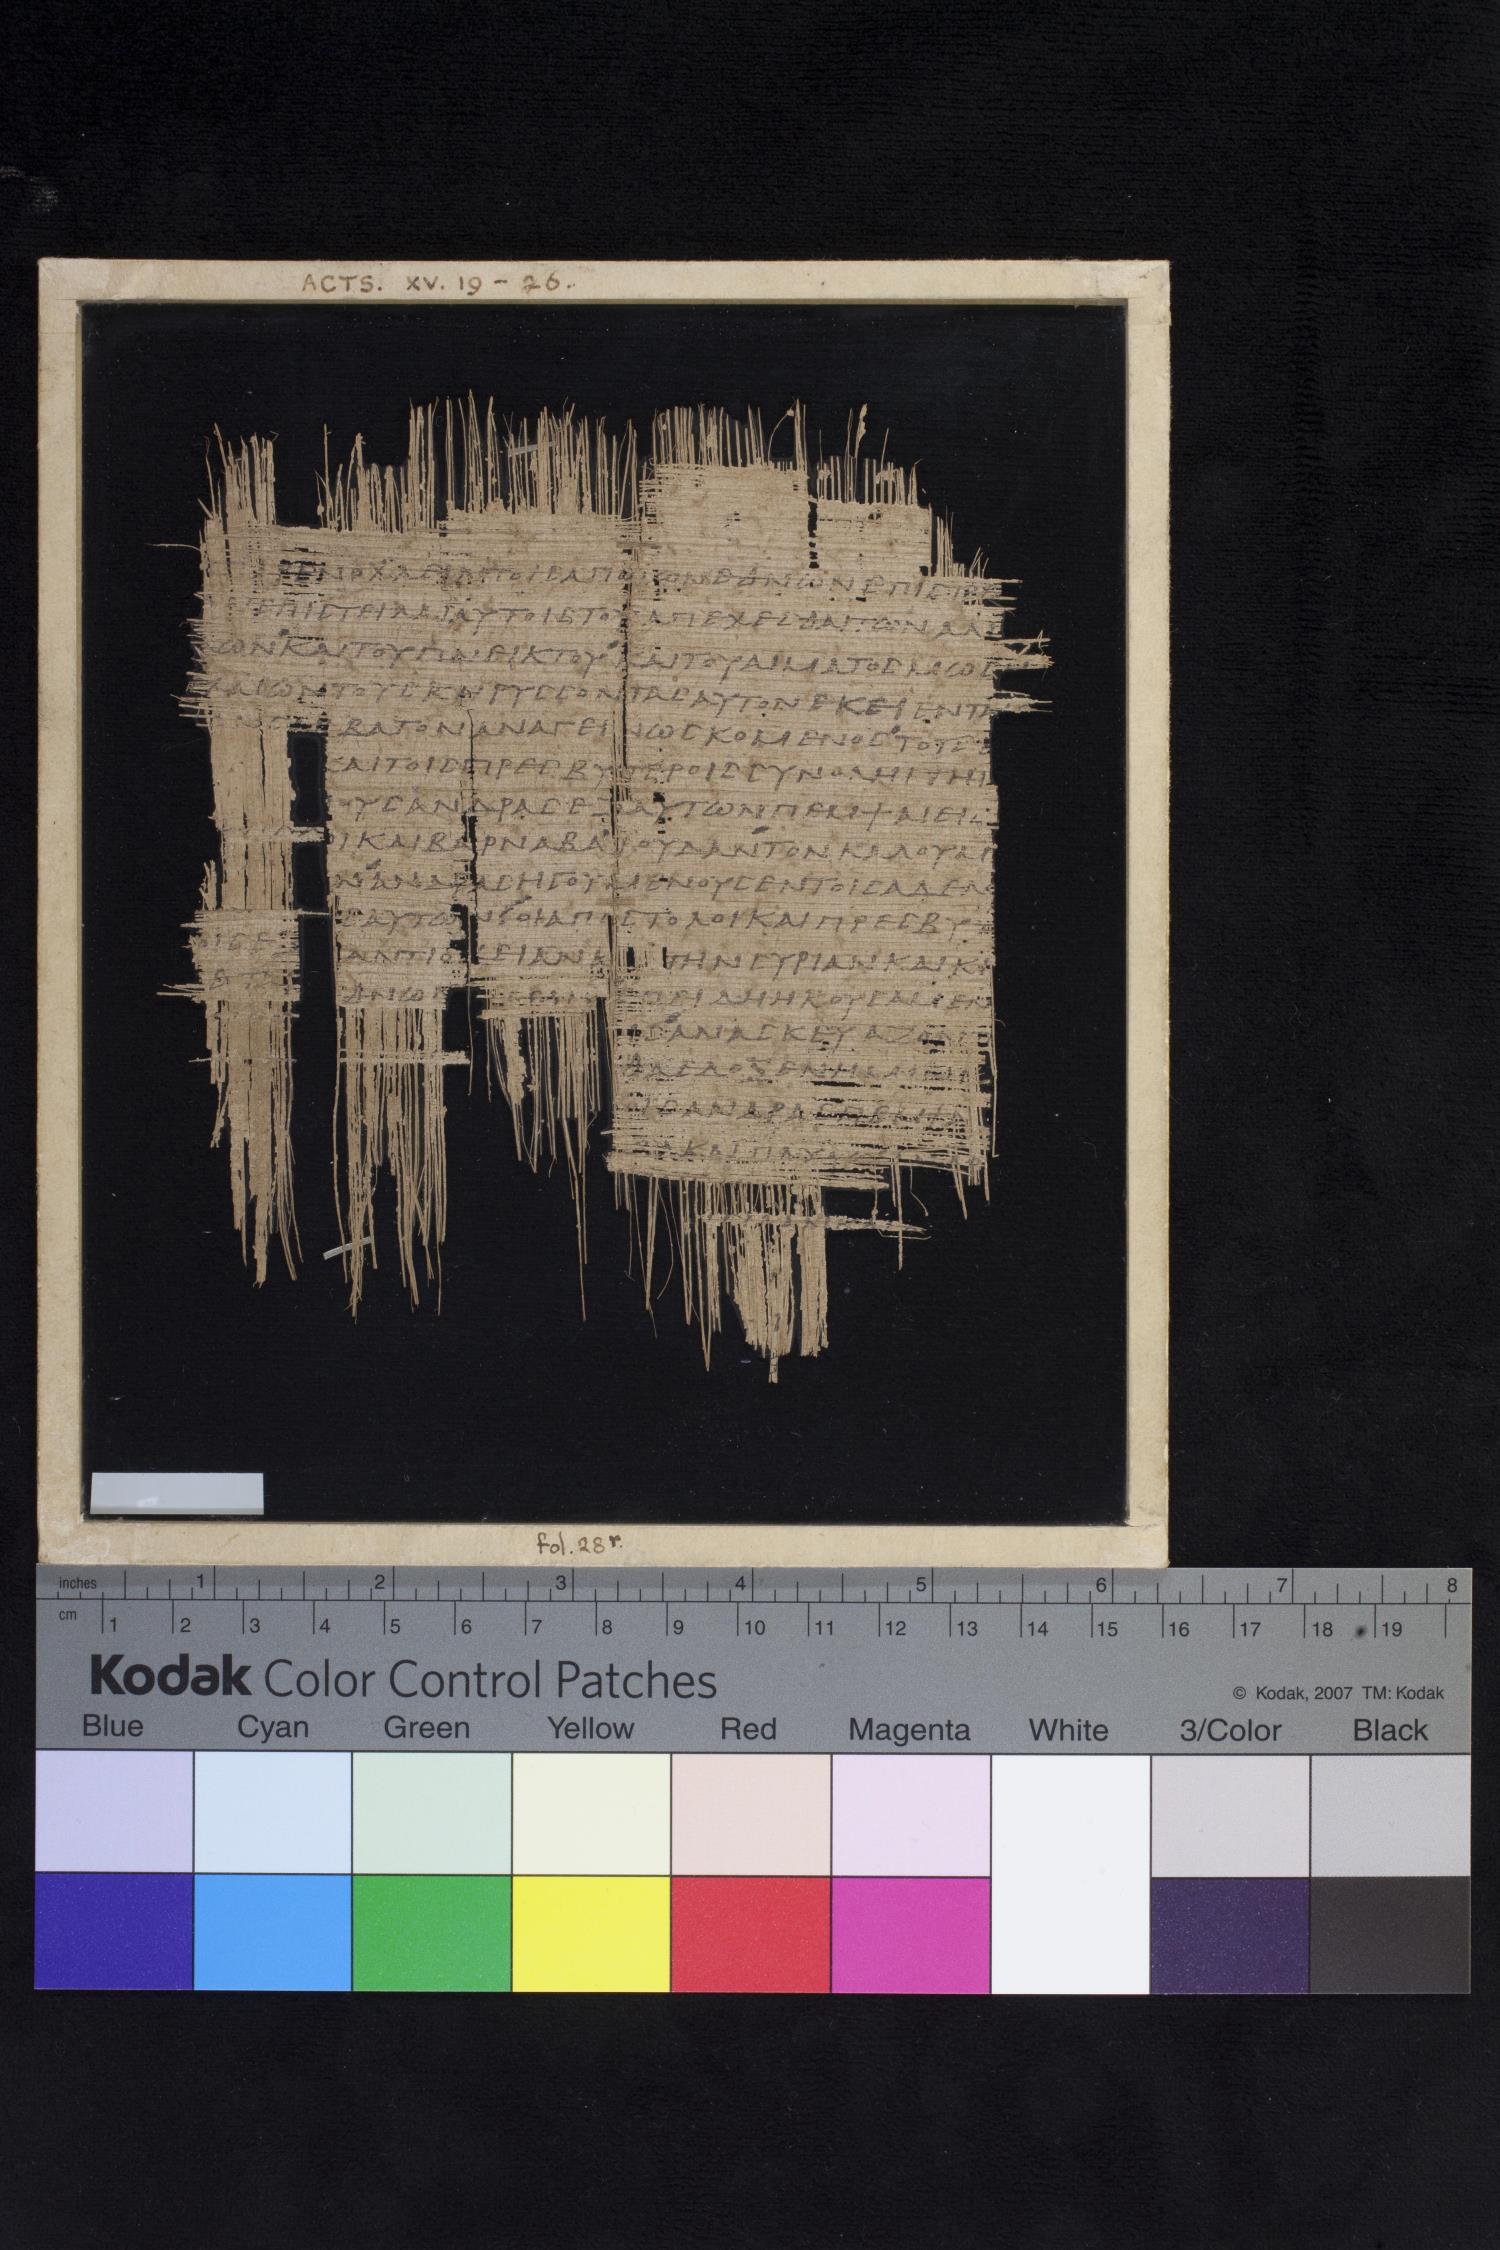 ACTS. XV. 19 – 26.
ΕΝΟΧΛΕΙΝΤΟΙΣΑΠΟ ΩΝΕΘΝΩΝΕΠΙΣΤΡ
ΕΠΙΣΤΕΙΛΑΙΑΥΤΟΙΣΤΟΥΑΠΕΧΕΣΘΑΙΤΩΝΑΛΙ
ΩΝΚΑΙΤΟΥΠΝΕΙΚΤΟΥΚΑΙΤΟΥΑΙΜΑΤΟΣΜΩΣ
ΧΑΙΩΝΤΟΥΣΚΗΡΥΣΣΟΝΤΑΣΑΥΤΟΝΕΧΕΙΕΝΤ
ΒΑΤΟΝΑΝΑΓΕΙΝΩΣΚΟΜΕΝΟΣΤΟΤΕΕ
ΚΑΙΤΟΙΣΠΡΕΣΒΥΤΕΡΟΙΣΣΥΝΟΛΗΙΤΗΙ
ΟΥΣΑΝΔΡΑΣΕΞΑΥΤΩΝΠΕΜΨΑΙΕΙΣ
ΩΙΚΑΙΒΑΡΝΑΒΑΙΟΥΔΑΝΤΟΝΚΑΛΟΥΜ
ΝΑΝΔΡΑΣΗΓΟΥΜΕΝΟΥΣΕΝΤΟΙΣΑΔΕΛ
ΣΑΥΤΩΝΟΙΑΠΟΣΤΟΛΟΙΚΑΙΠΡΕΣΒΥΤ
ΑΝΤΙΟΧΕΙΑΝΚΑΙΤΗΝΣΥΡΙΑΝΚΑΙΚΙ
ΘΝΩΝ ΕΠΕΙΔΗΗΚΟΥΣΑΜΕΝ
ΑΝΑΣΚΕΥΑΖΟΝΤ
ΘΑΕΔΟΞΕΝΗΜΙΝ
ΣΑΝΔΡΑΣΠΕΜΨΑ
ΒΑΚΑΙΠΑΥΛ
fol. 28 r.
inches 1 2 3 4 5 6 7 8
cm 1 2 3 4 5 6 7 8 9 10 11 12 13 14 15 16 17 18 19
Kodak Color Control Patches
© Kodak, 2007 TM: Kodak
Blue Cyan Green Yellow Red Magenta White 3/Color Black